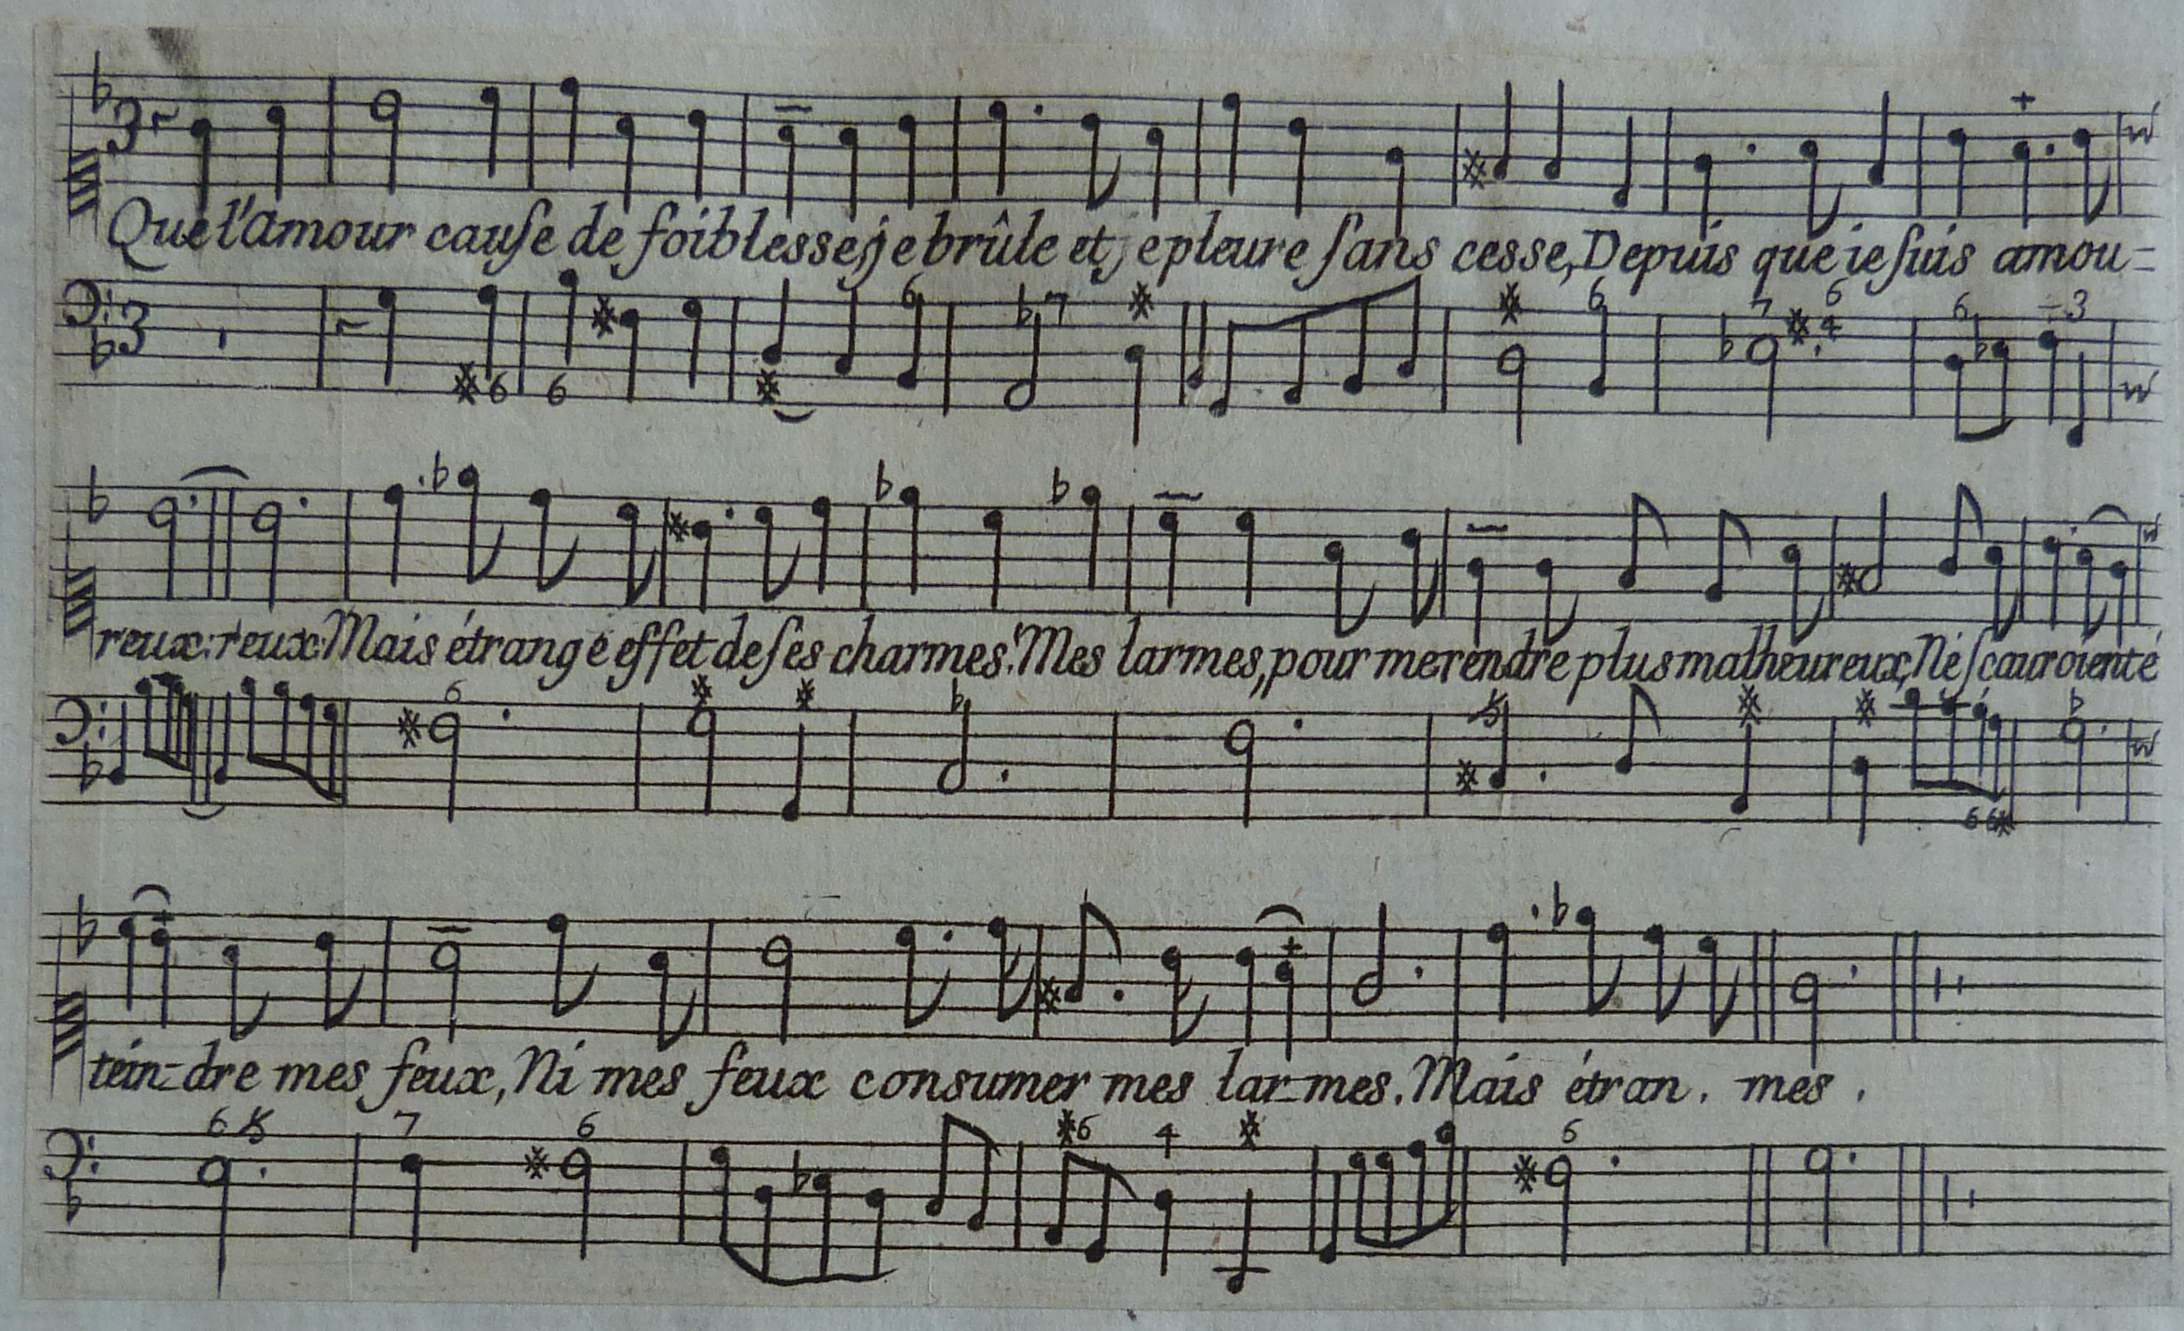 Que l'amour cause de foiblesse, je brûle et je pleure sans cesse, Depuis que ie suis amou-
reux: reux: Mais étrange effet de ses charmes! Mes larmes, pour me rendre plus malheureux, Ne sçauroient é
tein-dre mes feux, Ni mes feux consumer mes lar-mes. Mais étran. mes.